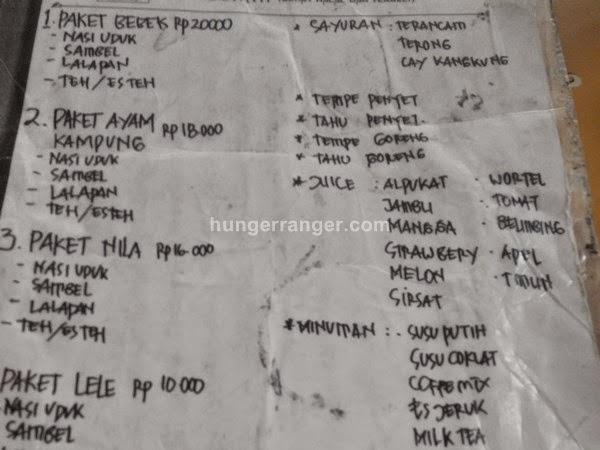 1. PAKET BEBEK Rp 20000
- NASI UDUK
- SAMBEL
- LALAPAN
- TEH/ESTEH
2. PAKET AYAM Rp 18.000
KAMPUNG
- NASI UDUK
- SAMBEL
- LALAPAN
- TEH/ESTEH
3. PAKET NILA Rp 16.000
- NASI UDUK
- SAMBEL
- LALAPAN
- TEH/ESTEH
PAKET LELE Rp 10 000
NASI UDUK
SAMBEL
* SAYURAN : TERANCAM
TERONG
CAY KANGKUNG
* TEMPE PENYET
* TAHU PENYET
* TEMPE GORENG
* TAHU GORENG
* JUICE : ALPUKAT · WORTEL
JAMBU · TOMAT
MANGGA · BELIMBING
STRAWBERY · APEL
MELON · TIMUN
SIRSAT
* MINUMAN : · SUSU PUTIH
SUSU COKLAT
COFFEMIX
ES JERUK
MILK TEA
hungerranger.com